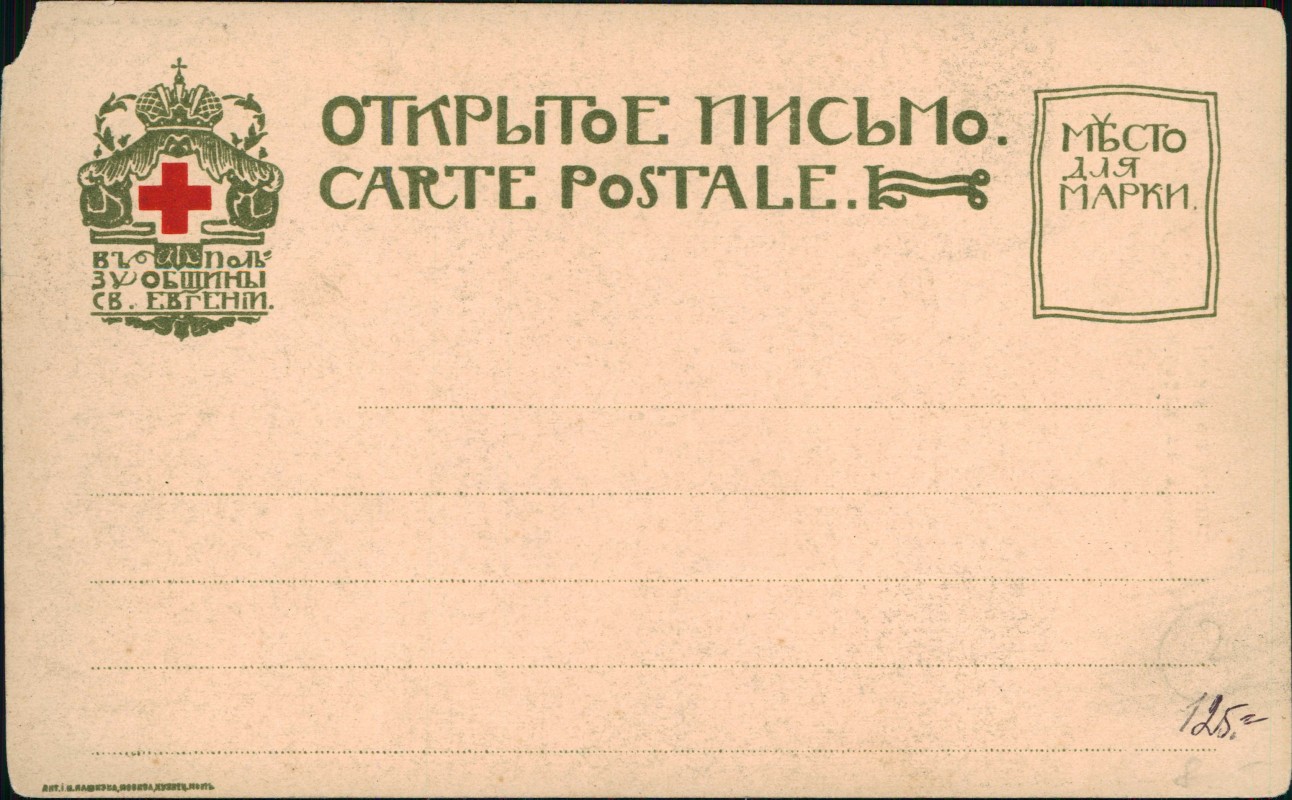 ОТКРЫТОЕ ПИСЬМО.
CARTE POSTALE.
МѢСТО
ДЛЯ
МАРКИ.
ВЪ ПОЛЬ-
ЗУ ОБЩИНЫ
СВ. ЕВГЕНІИ.
2
125.=
8